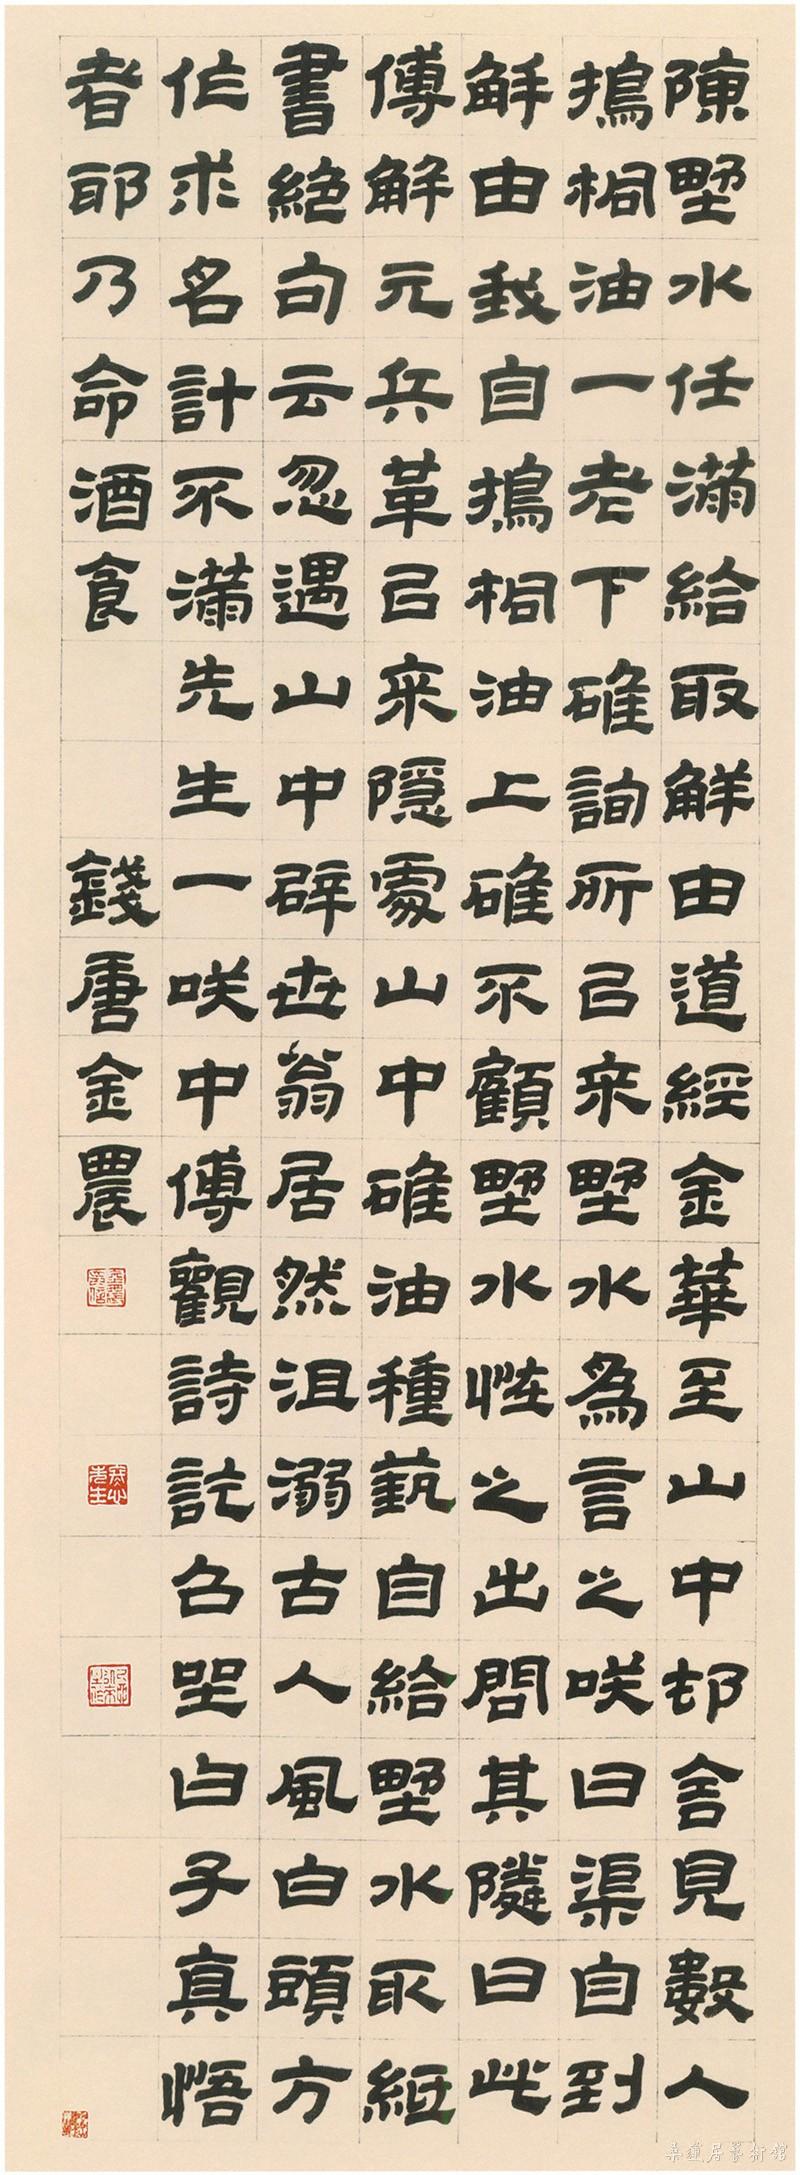 陳墅水任滿給取解由道經金華至山中邨舍見數人
搗桐油一老下碓詢所已來墅水為言之咲曰渠自到
解由我自搗桐油上碓不顧墅水恠之出問其隣曰此
傅解元兵革已來隱處山中碓油種蓺自給墅水取紙
書絕句云忽遇山中辟世翁居然沮溺古人風白頭方
作求名計不滿先生一咲中傅觀詩訖召坐曰子真悟
者耶乃命酒食 錢唐金農
金農印信
冬心先生
桑蓮居藝術館